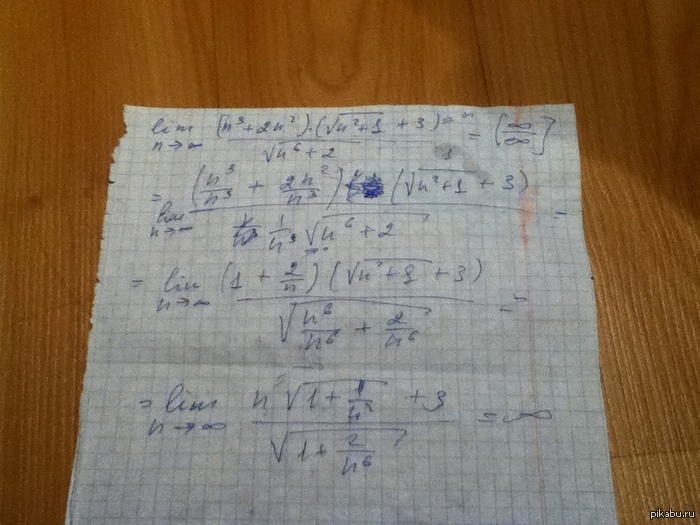 lim n→∞ (n³+2n²)·(√(n²+1) + 3) / √(n⁶+2) = [∞/∞]
= lim n→∞ (n³/n³ + 2n²/n³) (√(n²+1) + 3) / (1/n³ √(n⁶+2)) =
= lim n→∞ (1 + 2/n) (√(n²+1) + 3) / √(n⁶/n⁶ + 2/n⁶) =
= lim n→∞ (n √(1 + 1/n²) + 3) / √(1 + 2/n⁶) = ∞
pikabu.ru